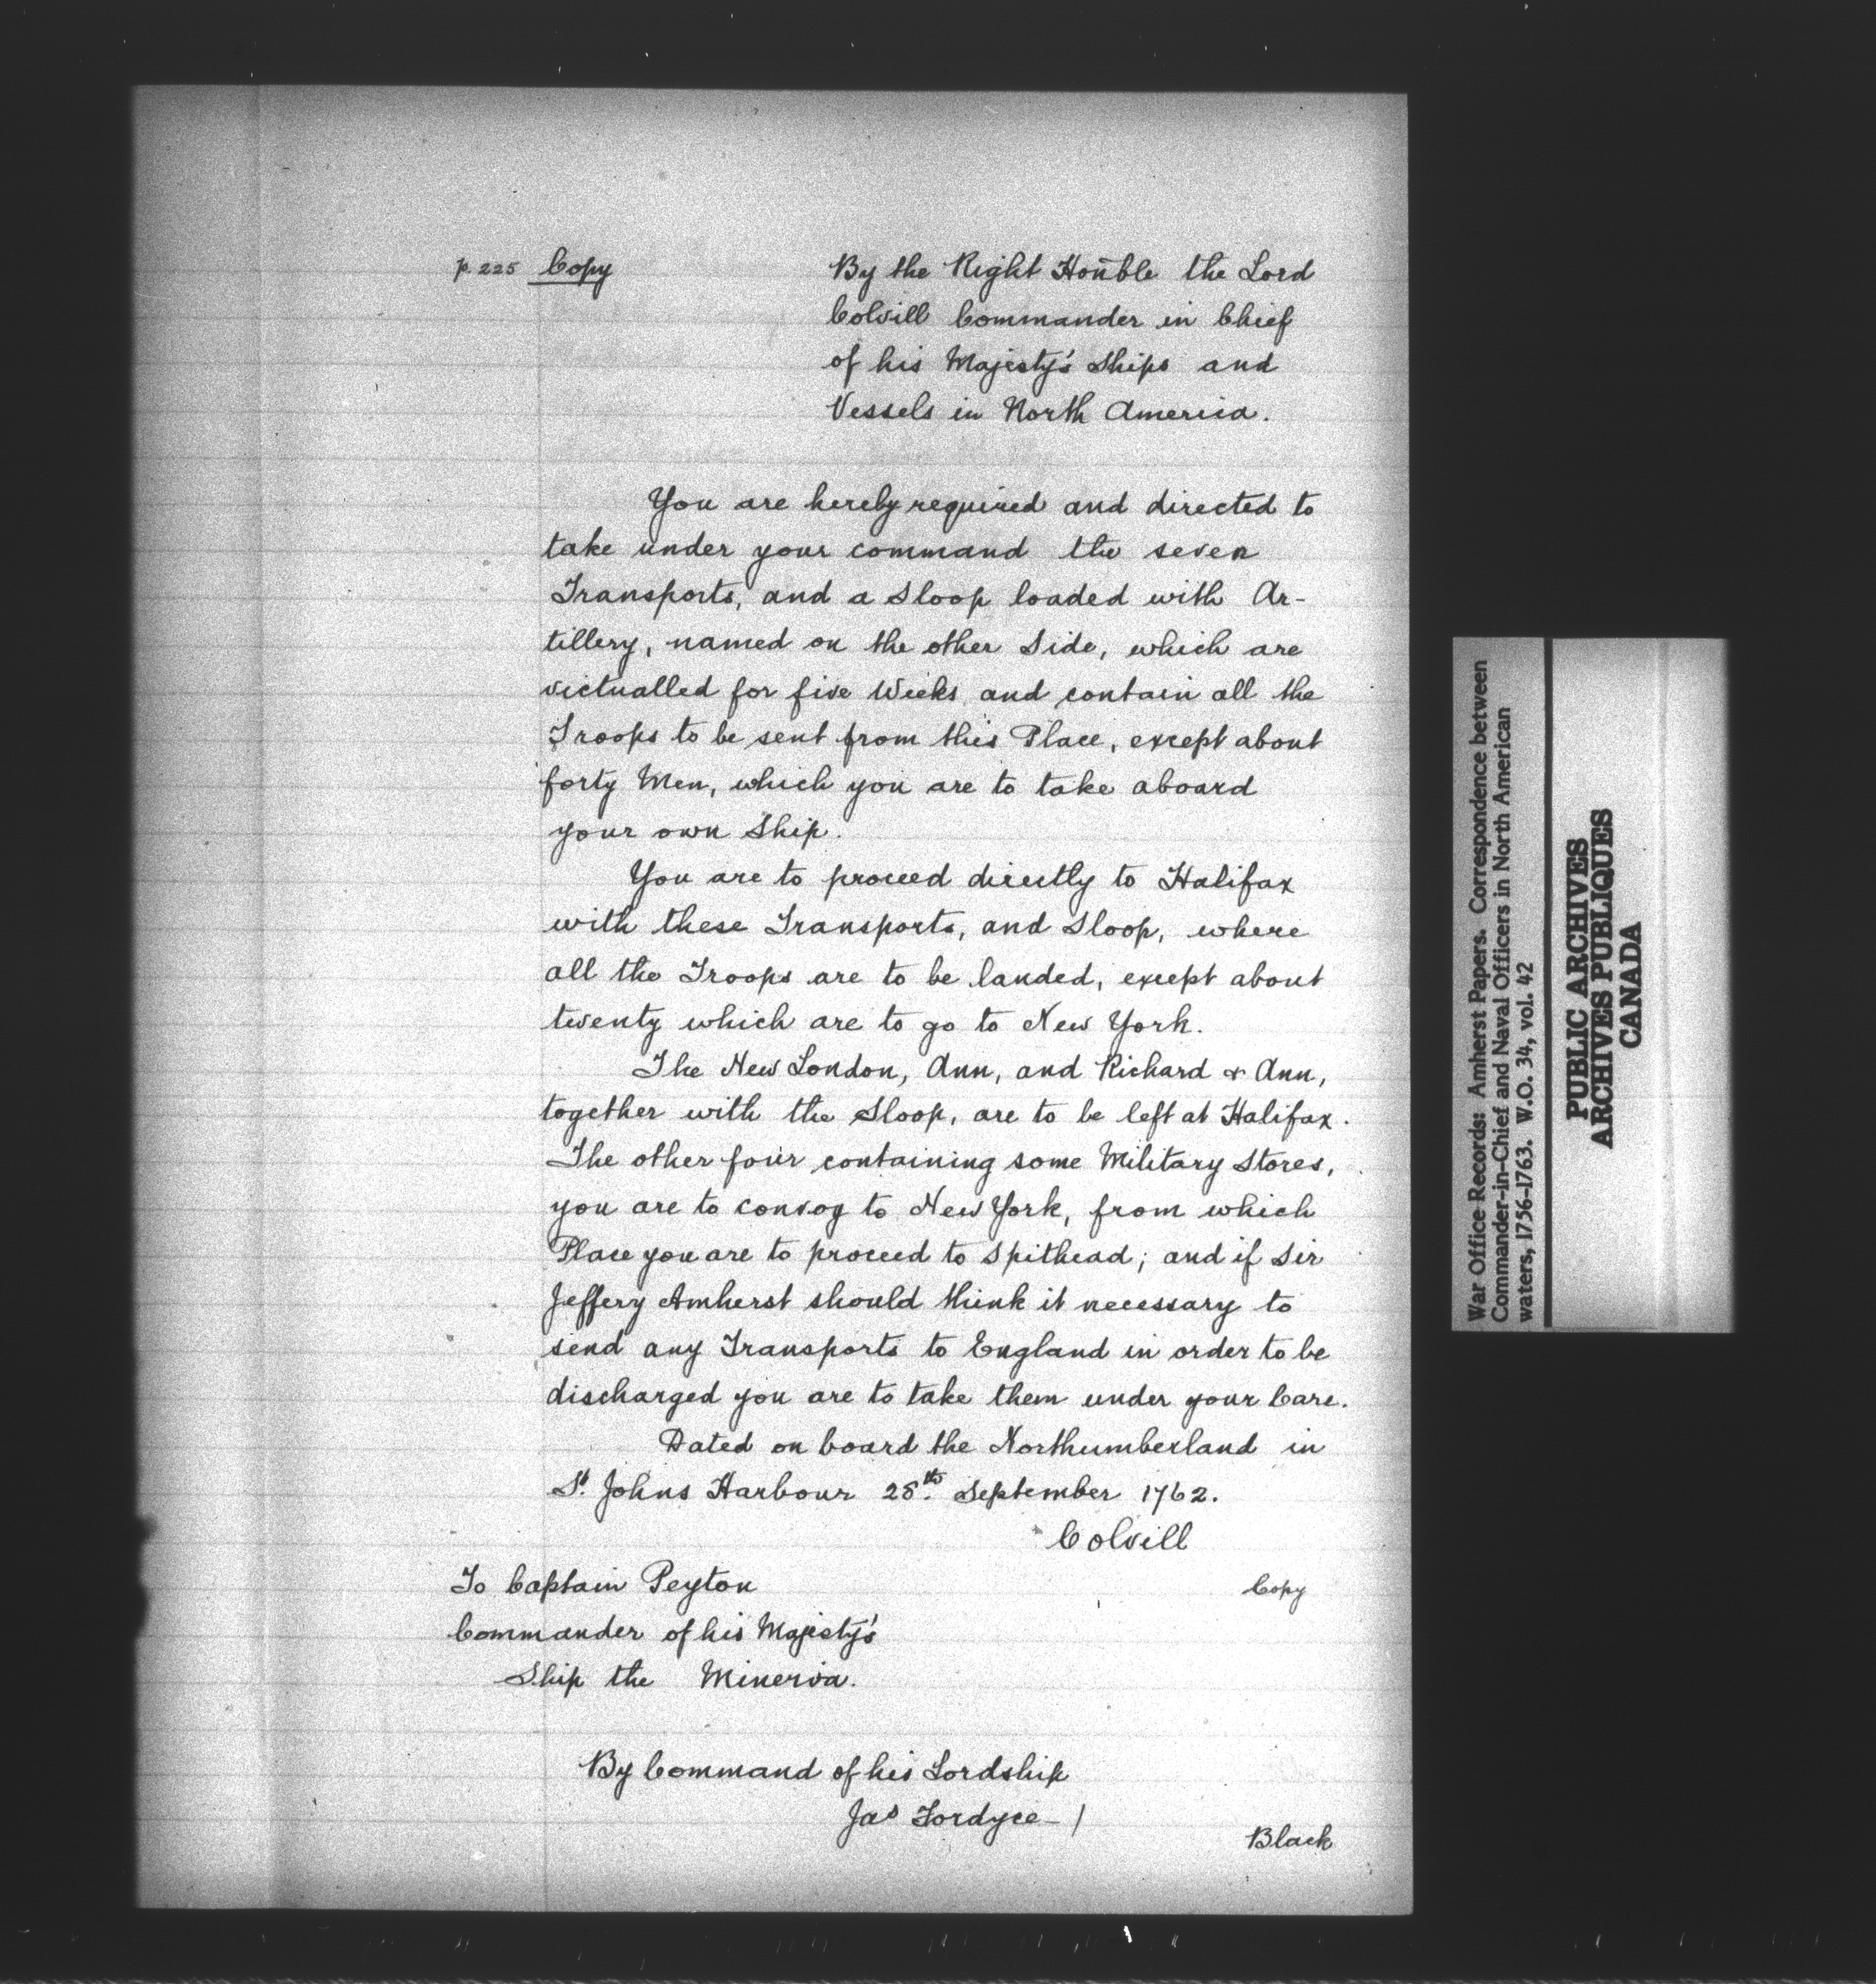 p. 225 Copy
By the Right Hon̄ble the Lord
Colvill Commander in Chief
of his Majesty's Ships and
Vessels in North America.
You are hereby required and directed to
take under your command the seven
Transports, and a Sloop loaded with Ar-
tillery, named on the other Side, which are
victualled for five Weeks and contain all the
Troops to be sent from this Place, except about
forty Men, which you are to take aboard
your own Ship.
You are to proceed directly to Halifax
with these Transports, and Sloop, where
all the Troops are to be landed, except about
twenty which are to go to New York.
The New London, Ann, and Richard & Ann,
together with the Sloop, are to be left at Halifax.
The other four containing some Military Stores,
you are to convoy to New York, from which
Place you are to proceed to Spithead; and if Sir
Jeffery Amherst should think it necessary to
send any Transports to England in order to be
discharged you are to take them under your Care.
Dated on board the Northumberland in
St. Johns Harbour 28th. September 1762.
Colvill
To Captain Peyton
Copy
Commander of his Majesty's
Ship the Minerva.
By Command of his Lordship
Jas Fordyce - /
Black
War Office Records: Amherst Papers. Correspondence between
Commander-in-Chief and Naval Officers in North American
waters, 1756-1763. W.O. 34, vol. 42
PUBLIC ARCHIVES
ARCHIVES PUBLIQUES
CANADA